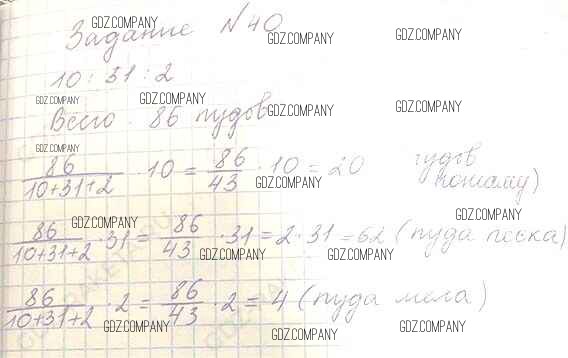 GDZ.COMPANY
Задание №40
GDZ.COMPANY GDZ.COMPANY
10 : 31 : 2
GDZ.COMPANY GDZ.COMPANY GDZ.COMPANY GDZ.COMPANY
Всего - 86 пудов
GDZ.COMPANY
86/(10+31+2) · 10 = 86/43 · 10 = 20 пудов
GDZ.COMPANY поташу)
GDZ.COMPANY GDZ.COMPANY
86/(10+31+2) · 31 = 86/43 · 31 = 2 · 31 = 62 (пуда песка)
GDZ.COMPANY GDZ.COMPANY GDZ.COMPANY
86/(10+31+2) · 2 = 86/43 · 2 = 4 (пуда мела)
GDZ.COMPANY GDZ.COMPANY GDZ.COMPANY